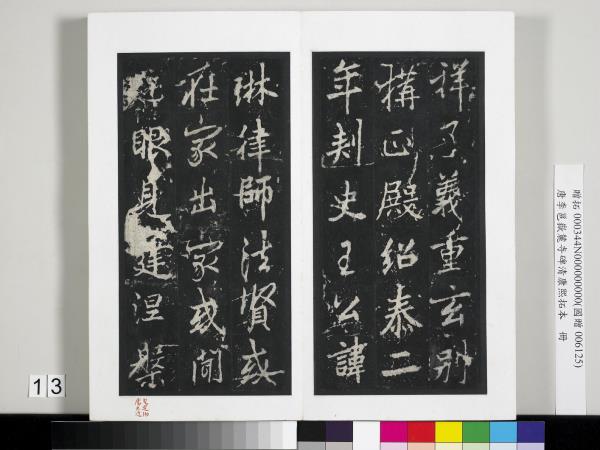 祥了義重玄別
構正殿紹泰二
年刾史王公諱
琳律師法賢或
在家出家或聞
眼見建涅槃
贈拓 000344N000000000(國贈 006125)
唐李邕嶽麓寺碑清康熙拓本 冊
13